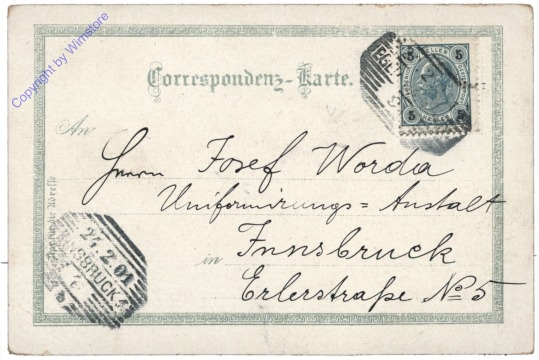 Copyright by Winstore
Correspondenz-Karte.
5 HELLER 5
5 HELLER 5
An
Herrn Josef Worda
Uniformirungs=Anstalt
in Innsbruck
Erlerstraße No 5
24.2.01
INNSBRUCK 1